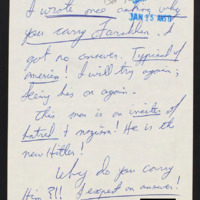 JAN 15 REC'D
I wrote once asking why
you carry Farakhan. I
got no answer. Typical of
America! I will try again,
seeing he's on again.
This man is an inciter of
hatred & nazism! He is the
new Hitler!
Why do you carry
Him?!!! I expect an answer!